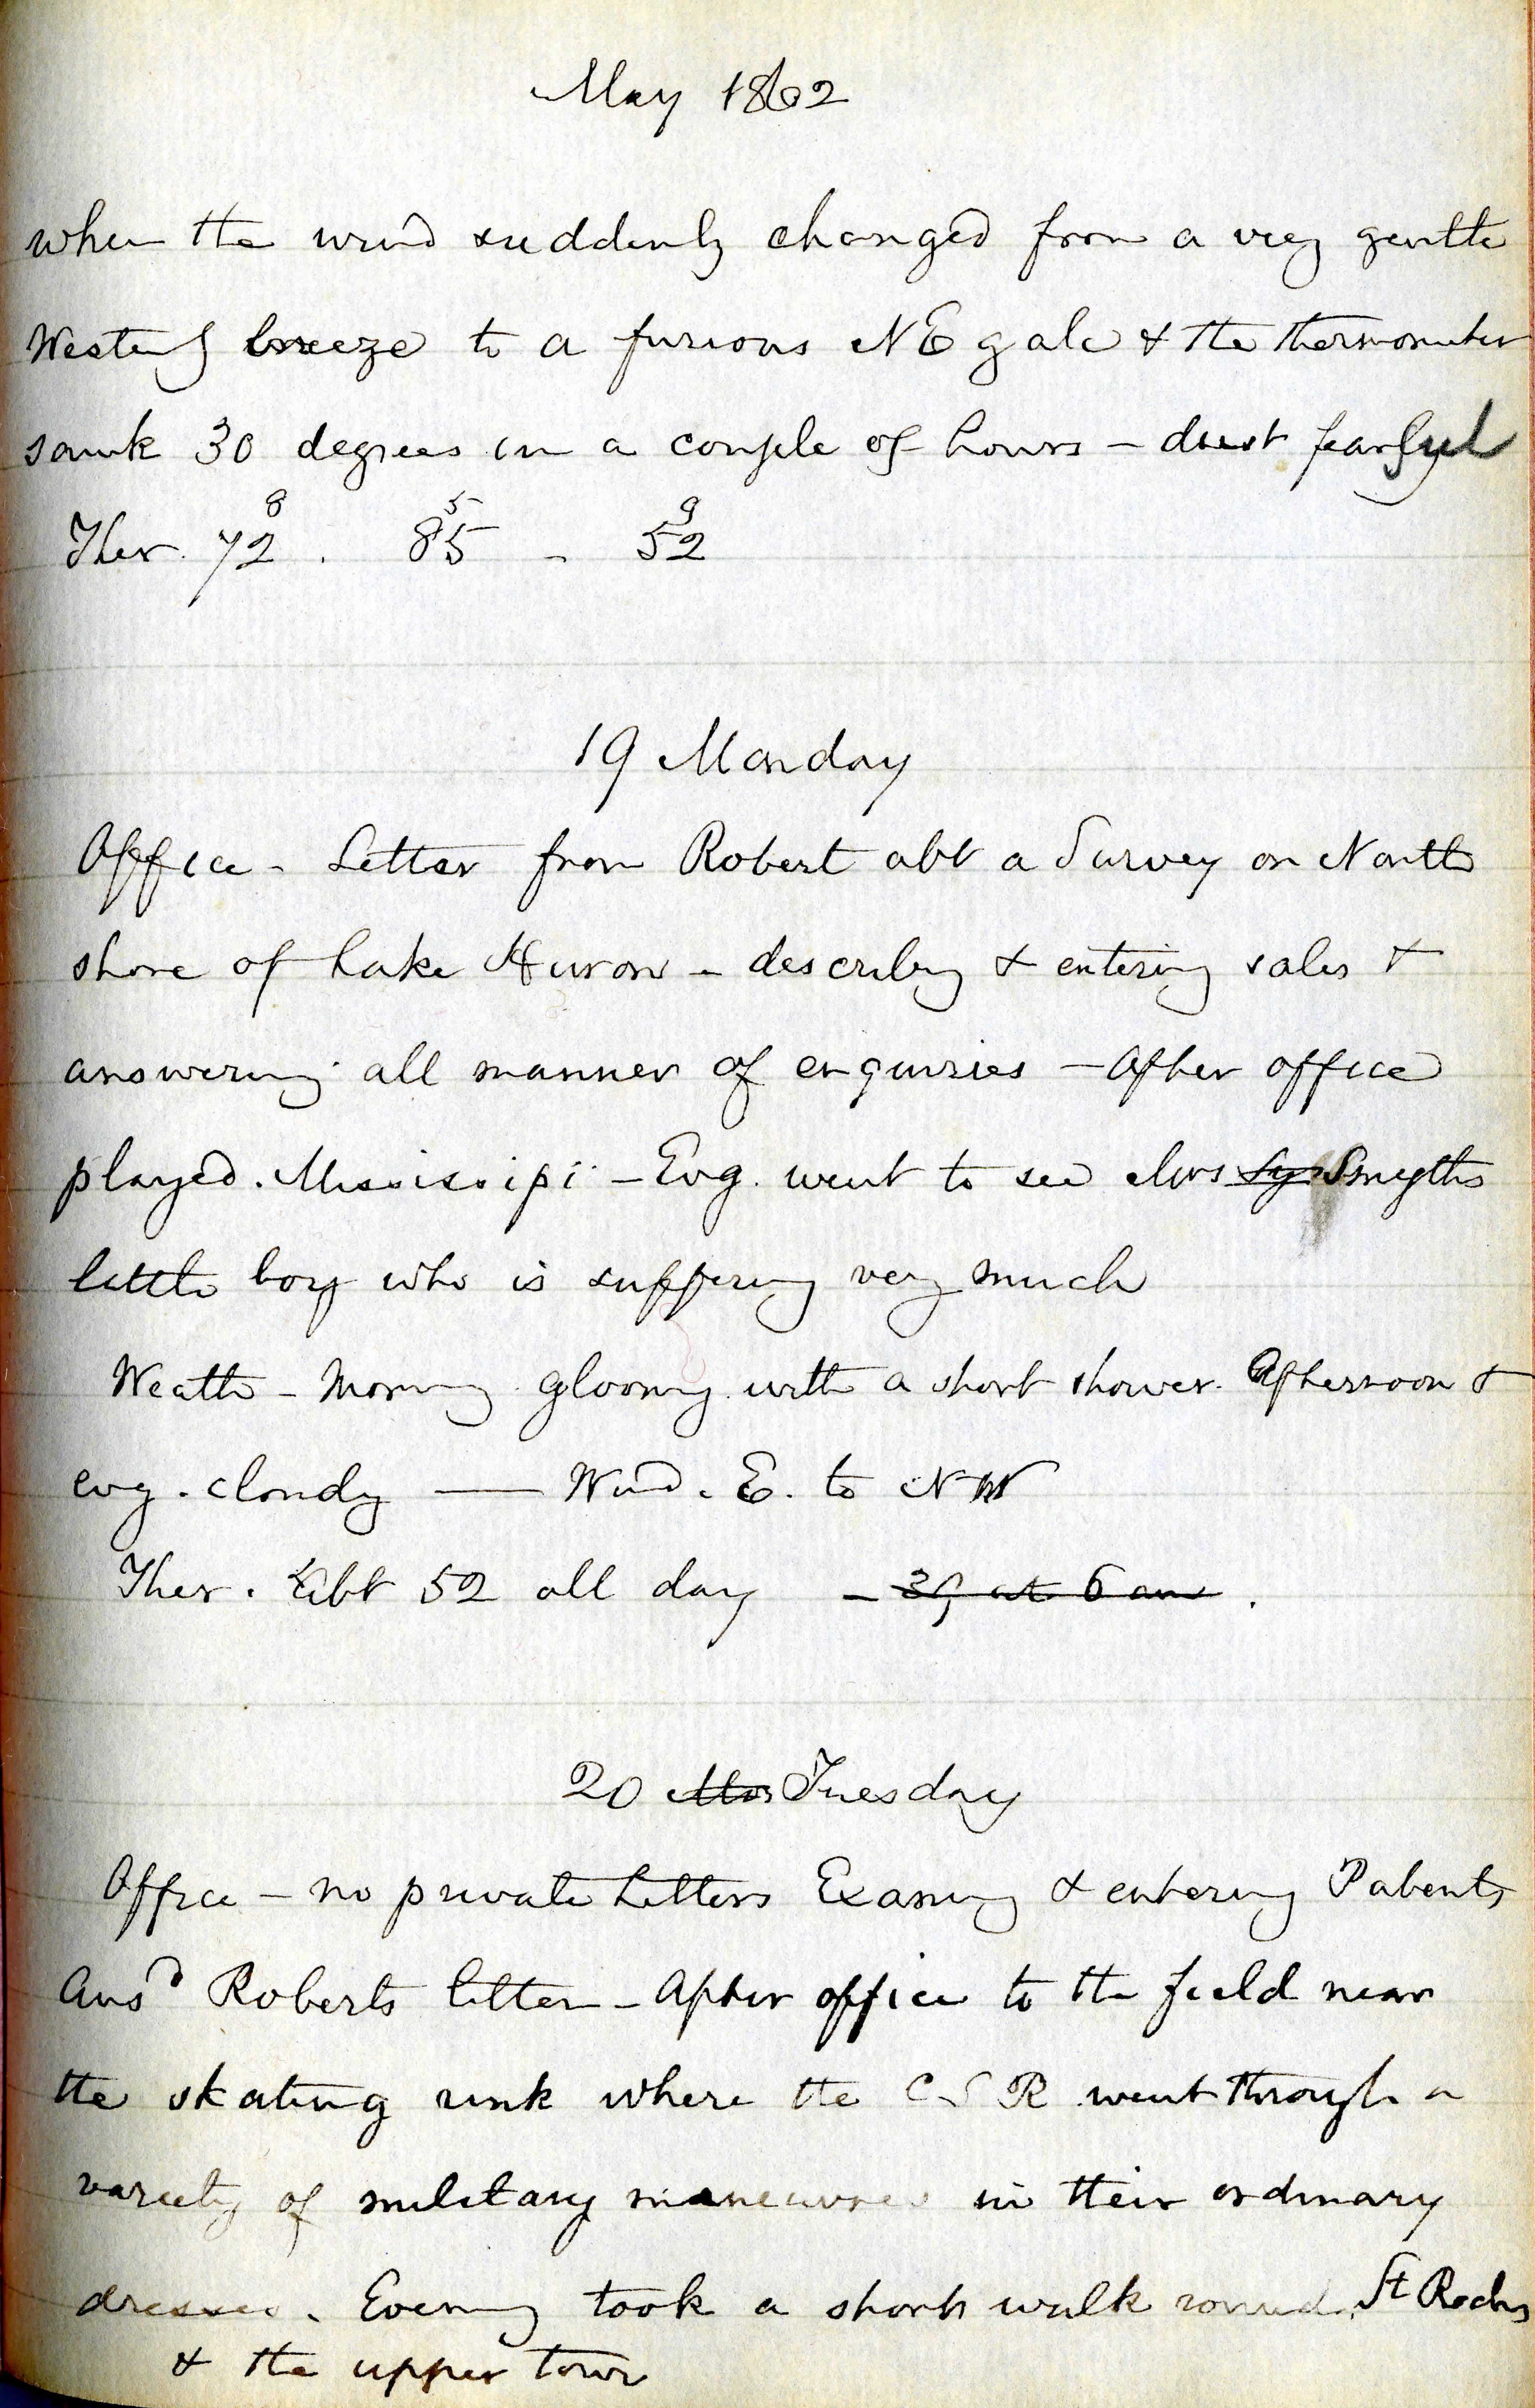 May 1862
when the wind suddenly changed from a very gentle
Westerly breeze to a furious NE gale & the thermometer
sank 30 degrees in a couple of hours – dust fearful
8 5 9
Ther. 72 . 85 – 52
19 Monday
Office – Letter from Robert abt a Survey on North
shore of Lake Huron – describing & entering sales &
answering all manner of enquiries – After office
played. Mississipi – Evg. went to see Mrs Sy Smyths
little boy who is suffering very much
Weather – Morning gloomy with a short shower. Afternoon &
evg. cloudy — Wind. E. to NW
Ther. Abt 52 all day – 39 at 6 am .
20 Mon Tuesday
Office – no private letters Examing & entering Patents
Ansd Roberts letter – After office to the field near
the skating rink where the CSR went through a
variety of military maneuvres in their ordinary
dresses. Evening took a short walk round St Rochs
& the upper town